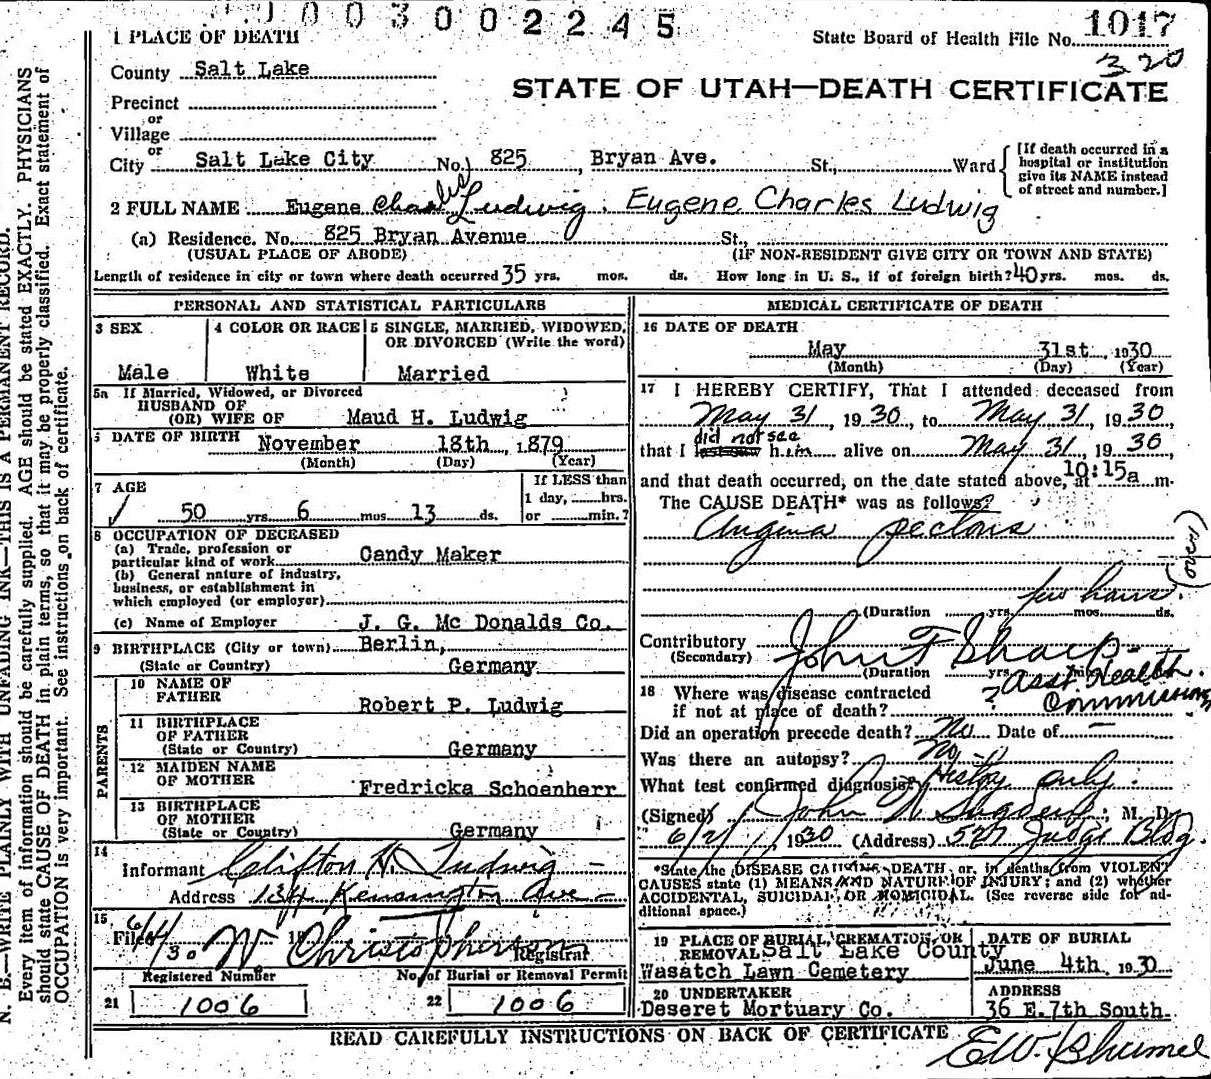 003002245
1017
1 PLACE OF DEATH
State Board of Health File No.
320
County Salt Lake
STATE OF UTAH—DEATH CERTIFICATE
Precinct
or
Village
or
City Salt Lake City No. 825 Bryan Ave. St., Ward
[If death occurred in a hospital or institution give its NAME instead of street and number.]
2 FULL NAME Eugene Charles Ludwig. Eugene Charles Ludwig
(a) Residence. No. 825 Bryan Avenue St.,
(USUAL PLACE OF ABODE) (IF NON-RESIDENT GIVE CITY OR TOWN AND STATE)
Length of residence in city or town where death occurred 35 yrs. mos. ds. How long in U. S., if of foreign birth? 40 yrs. mos. ds.
PERSONAL AND STATISTICAL PARTICULARS
3 SEX
Male
4 COLOR OR RACE
White
5 SINGLE, MARRIED, WIDOWED,
OR DIVORCED (Write the word)
Married
5a If Married, Widowed, or Divorced
HUSBAND OF
(OR) WIFE OF Maud H. Ludwig
6 DATE OF BIRTH November 18th, 1879
(Month) (Day) (Year)
7 AGE
50 yrs. 6 mos. 13 ds.
If LESS than
1 day, hrs.
or min.?
8 OCCUPATION OF DECEASED
(a) Trade, profession or
particular kind of work Candy Maker
(b) General nature of industry,
business, or establishment in
which employed (or employer)
(c) Name of Employer J. G. Mc Donalds Co.
9 BIRTHPLACE (City or town) Berlin,
(State or Country) Germany
PARENTS
10 NAME OF
FATHER Robert P. Ludwig
11 BIRTHPLACE
OF FATHER
(State or Country) Germany
12 MAIDEN NAME
OF MOTHER Fredricka Schoenherr
13 BIRTHPLACE
OF MOTHER
(State or Country) Germany
14
Informant Clifton H. Ludwig
Address 134 Kensington Ave
15
Filed 6/4/30 W Christopherson
Registrar
Registered Number
21 1006
No. of Burial or Removal Permit
22 1006
MEDICAL CERTIFICATE OF DEATH
16 DATE OF DEATH
May 31st, 1930
(Month) (Day) (Year)
17 I HEREBY CERTIFY, That I attended deceased from
May 31, 1930, to May 31, 1930
did not see
that I last saw him alive on May 31, 1930,
and that death occurred, on the date stated above, at 10:15a m.
The CAUSE DEATH* was as follows:
Angina pectoris
(over)
few hours.
(Duration yrs. mos. ds.
Contributory
(Secondary)
John F Sharp
(Duration yrs.
Asst. Health
Commissioner
18 Where was disease contracted
if not at place of death? ?
Did an operation precede death? No Date of —
Was there an autopsy? No
What test confirmed diagnosis? History only.
(Signed) John W, M. D.
6/2/, 1930 (Address) 527 Judge Bldg.
*State the DISEASE CAUSING DEATH, or, in deaths from VIOLENT
CAUSES state (1) MEANS AND NATURE OF INJURY; and (2) whether
ACCIDENTAL, SUICIDAL, OR HOMICIDAL. (See reverse side for ad-
ditional space.)
19 PLACE OF BURIAL, CREMATION, OR
REMOVAL Salt Lake County
Wasatch Lawn Cemetery
DATE OF BURIAL
June 4th, 1930
20 UNDERTAKER
Deseret Mortuary Co.
ADDRESS
36 E. 7th South.
READ CAREFULLY INSTRUCTIONS ON BACK OF CERTIFICATE
N. B.—WRITE PLAINLY WITH UNFADING INK—THIS IS A PERMANENT RECORD.
Every item of information should be carefully supplied. AGE should be stated EXACTLY. PHYSICIANS
should state CAUSE OF DEATH in plain terms, so that it may be properly classified. Exact statement of
OCCUPATION is very important. See instructions on back of certificate.